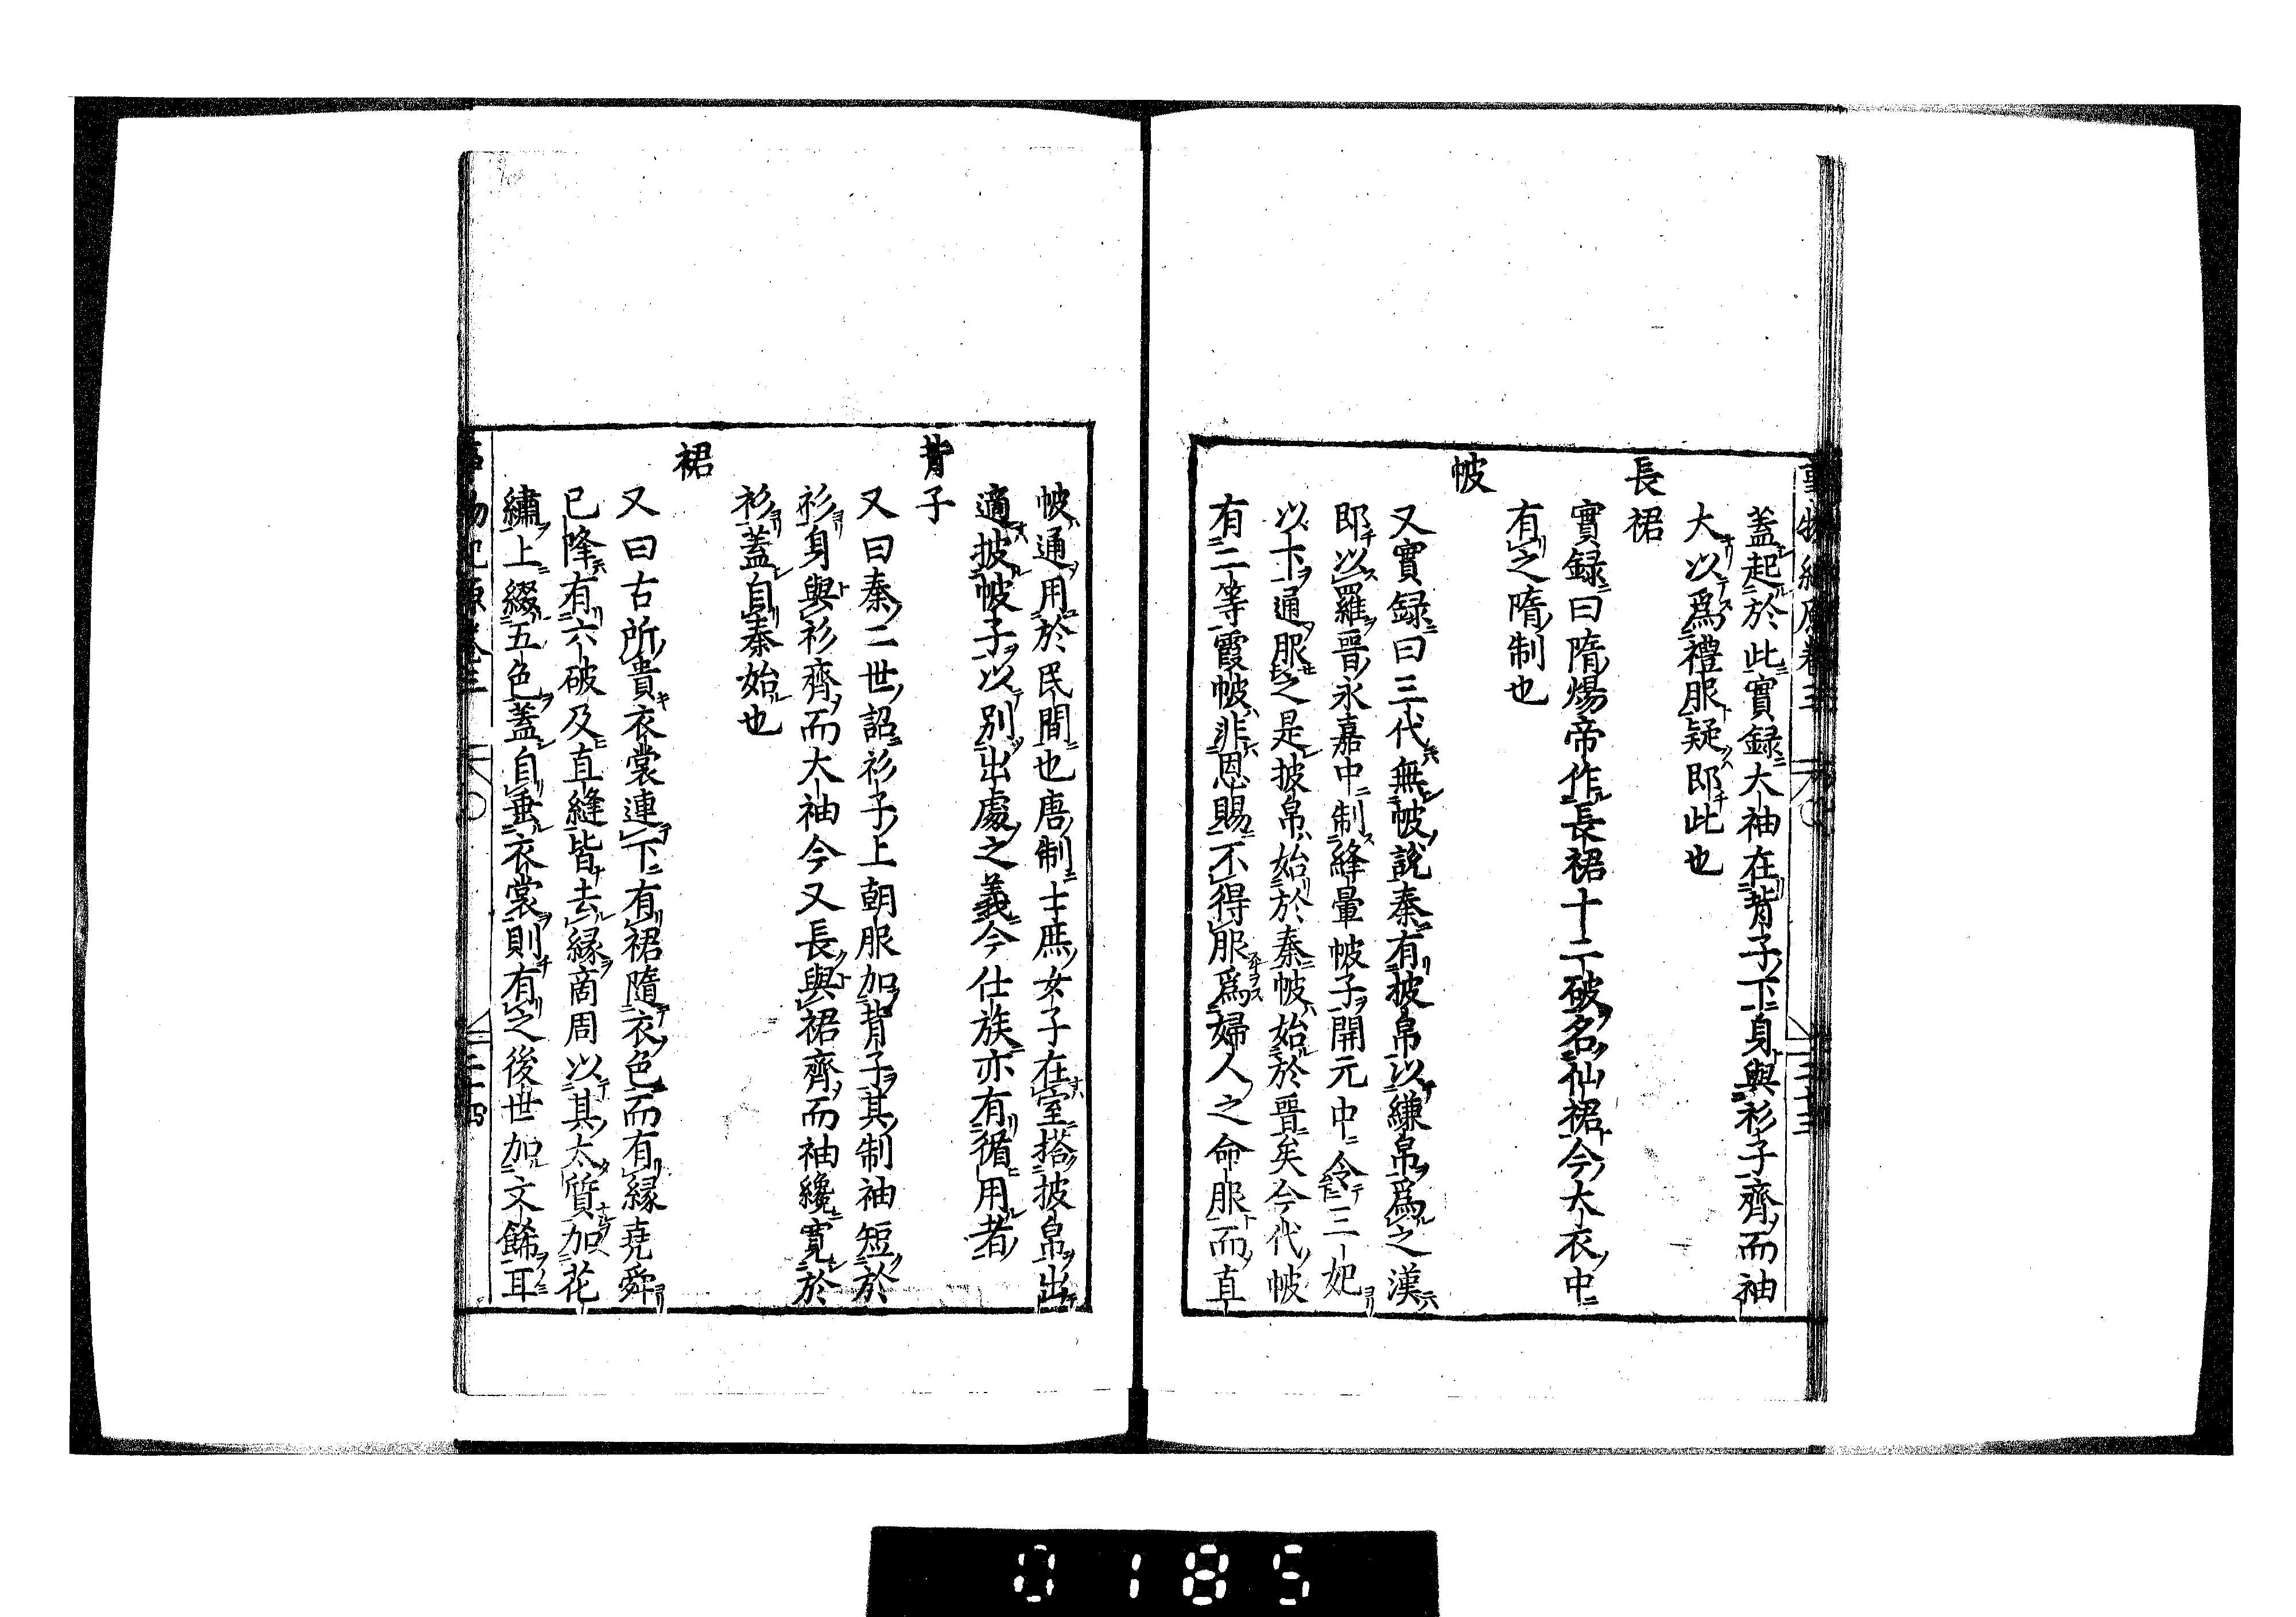 事物紀原卷三 二十三
蓋起於此實録大袖在背子下身與衫子齊而袖
大以爲禮服疑即此也
長裙
實録曰隋煬帝作長裙十二破名仙裙今大衣中
有之隋制也
帔
又實録曰三代無帔說秦有披帛以縑帛爲之漢
即以羅晉永嘉中制絳暈帔子開元中令三妃
以下通服之是披帛始於秦帔始於晉矣今代帔
有二等霞帔非恩賜不得服爲婦人之命服而直
帔通用於民間也唐制士庶女子在室搭披帛出
適披帔子以別出處之義今仕族亦有循用者
背子
又曰秦二世詔衫子上朝服加背子其制袖短於
衫身與衫齊而大袖今又長與裙齊而袖纔寛於
衫蓋自秦始也
裙
又曰古所貴衣裳連下有裙隨衣色而有縁堯舜
已降有六破及直縫皆去縁商周以其太質加花
繡上綴五色蓋自垂衣裳則有之後世加文餙耳
事物紀原卷三 二十四
0185